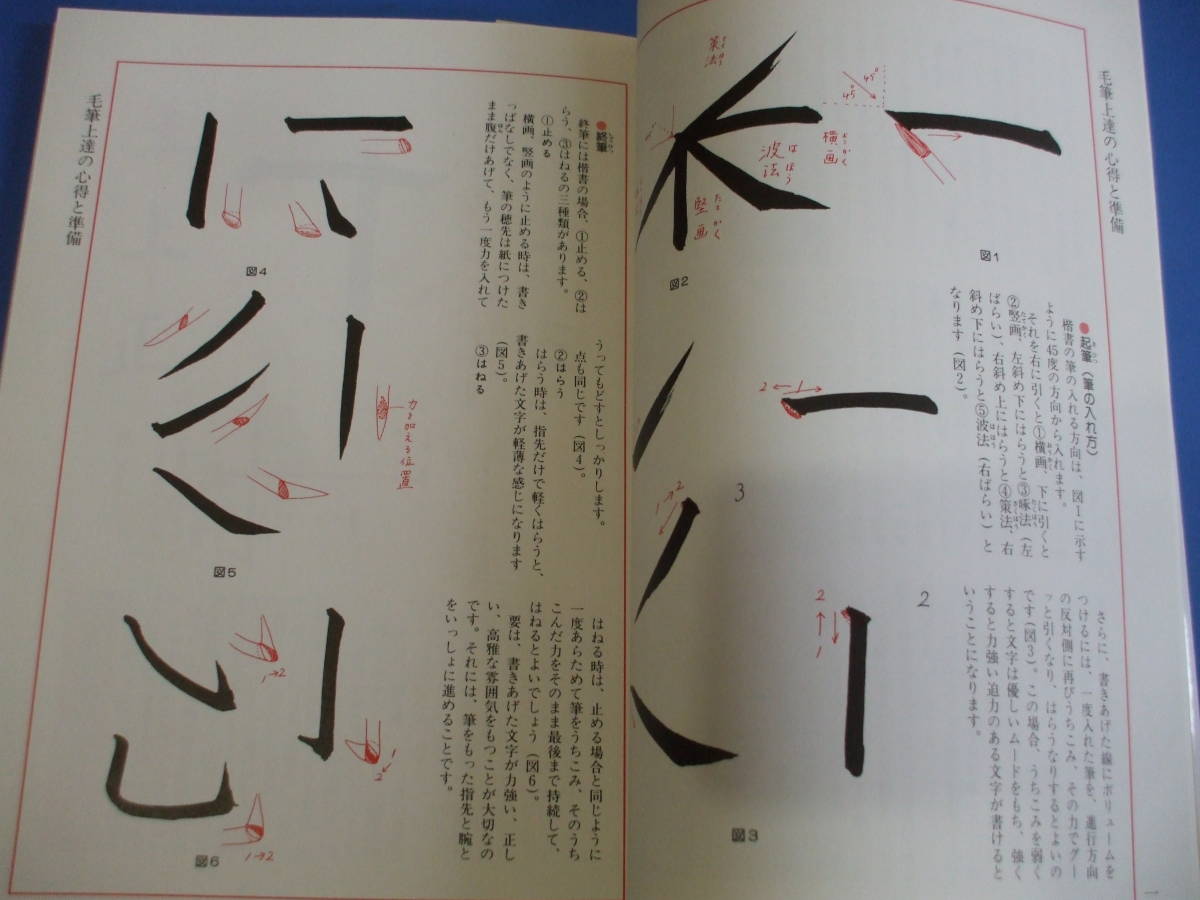 毛筆上達の心得と準備
策法
さくほう
45°
45°
横画
おうかく
波法
はほう
竪画
たてかく
図1
図2
●起筆（筆の入れ方）
楷書の筆の入れる方向は、図1に示す
ように45度の方向から入れます。
それを右に引くと①横画、下に引くと
②竪画、左斜め下にはらうと③啄法（左
ばらい）、右斜め上にはらうと④策法、右
斜め下にはらうと⑤波法（右ばらい）と
なります（図2）。
さらに、書きあげた線にボリュームを
つけるには、一度入れた筆を、進行方向
の反対側に再びうちこみ、その力でグー
ッと引くなり、はらうなりするとよいの
です（図3）。この場合、うちこみを弱く
すると文字は優しいムードをもち、強く
すると力強い迫力のある文字が書けると
いうことになります。
2
1
3
1
2
2
1
2
図3
一
毛筆上達の心得と準備
●終筆
しゅうひつ
終筆には楷書の場合、①止める、②は
らう、③はねるの三種類があります。
①止める
横画、竪画のように止める時は、書き
っぱなしでなく、筆の穂先は紙につけた
まま腹だけあげて、もう一度力を入れて
うってもどすとしっかりします。
点も同じです（図4）。
②はらう
はらう時は、指先だけで軽くはらうと、
書きあげた文字が軽薄な感じになります
（図5）。
③はねる
はねる時は、止める場合と同じように
一度あらためて筆をうちこみ、そのうち
こんだ力をそのまま最後まで持続して、
はねるとよいでしょう（図6）。
要は、書きあげた文字が力強い、正し
い、高雅な雰囲気をもつことが大切なの
です。それには、筆をもった指先と腕と
をいっしょに進めることです。
図4
力を加える位置
図5
1→2
2
1→2
図6